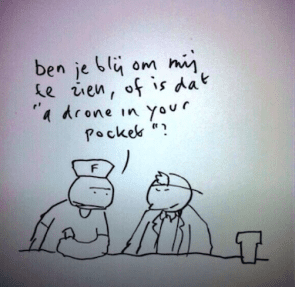 ben je blij om mij
te zien, of is dat
"a drone in your
pocket"?
F